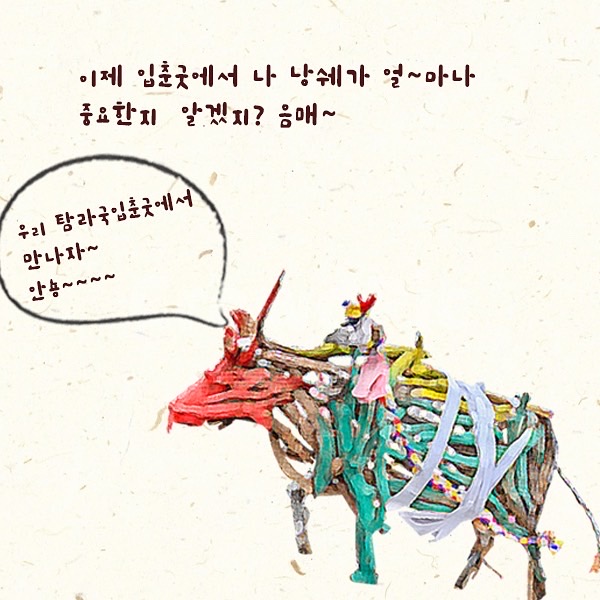 이제 입춘굿에서 나 낭쉐가 얼~마나
중요한지 알겠지? 음매~
우리 탐라국입춘굿에서
만나자~
안뇽~~~~